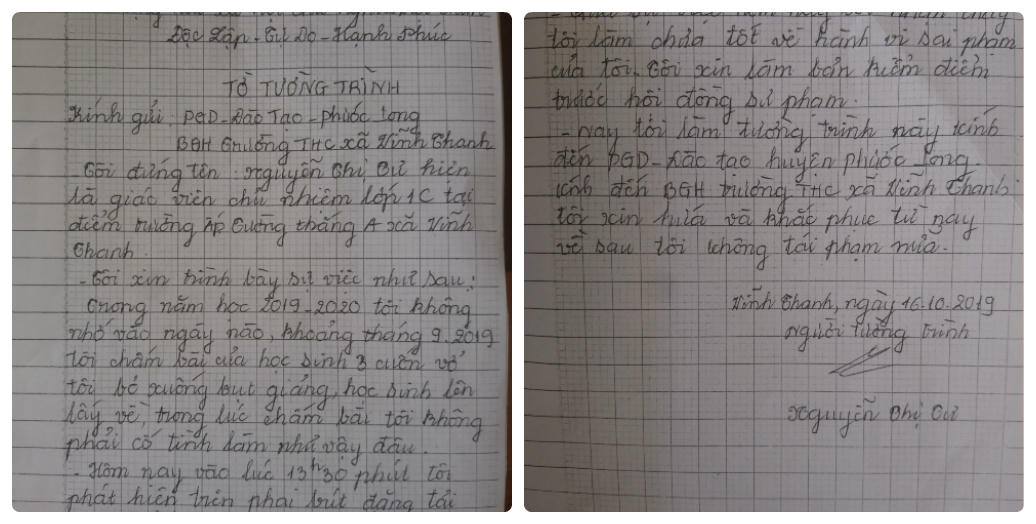 Độc Lập - Tự Do - Hạnh Phúc
TỜ TƯỜNG TRÌNH
Kính gửi: PGD-Đào Tạo-Phước Long
BGH Trường THC xã Vĩnh Thanh
- Tôi đứng tên: Nguyễn Thị Cư hiên
là giác viên chủ nhiệm lớp 1C tại
điểm trường ấp Tường thắng A xã Vĩnh
Thanh.
- Tôi xin trình bày sự việc như sau:
Trong năm học 2019-2020 tôi không
nhớ vào ngày nào, khoảng tháng 9.2019
tôi chấm bài của học sinh 3 cuốn vở
tôi bỏ xuống bục giảng, học sinh lên
lấy về, trong lúc chấm bài tôi không
phải cố tình làm như vậy đâu.
- Hôm nay vào lúc 13h30 phút tôi
phát hiện trên phai bút đăng tải
tôi làm chưa tốt về hành vi sai phạm
của tôi. Tôi xin làm bản kiểm điểm
trước hội đồng sư phạm.
- Nay tôi làm tường trình này kính
đến PGD-Đào tạo huyện Phước Long.
kính đến BGH trường THC xã Vĩnh Thanh
tôi xin hứa và khắc phục từ nay
về sau tôi không tái phạm nữa.
Vĩnh Thanh, ngày 16-10-2019
người tường trình
Nguyễn Thị Cư